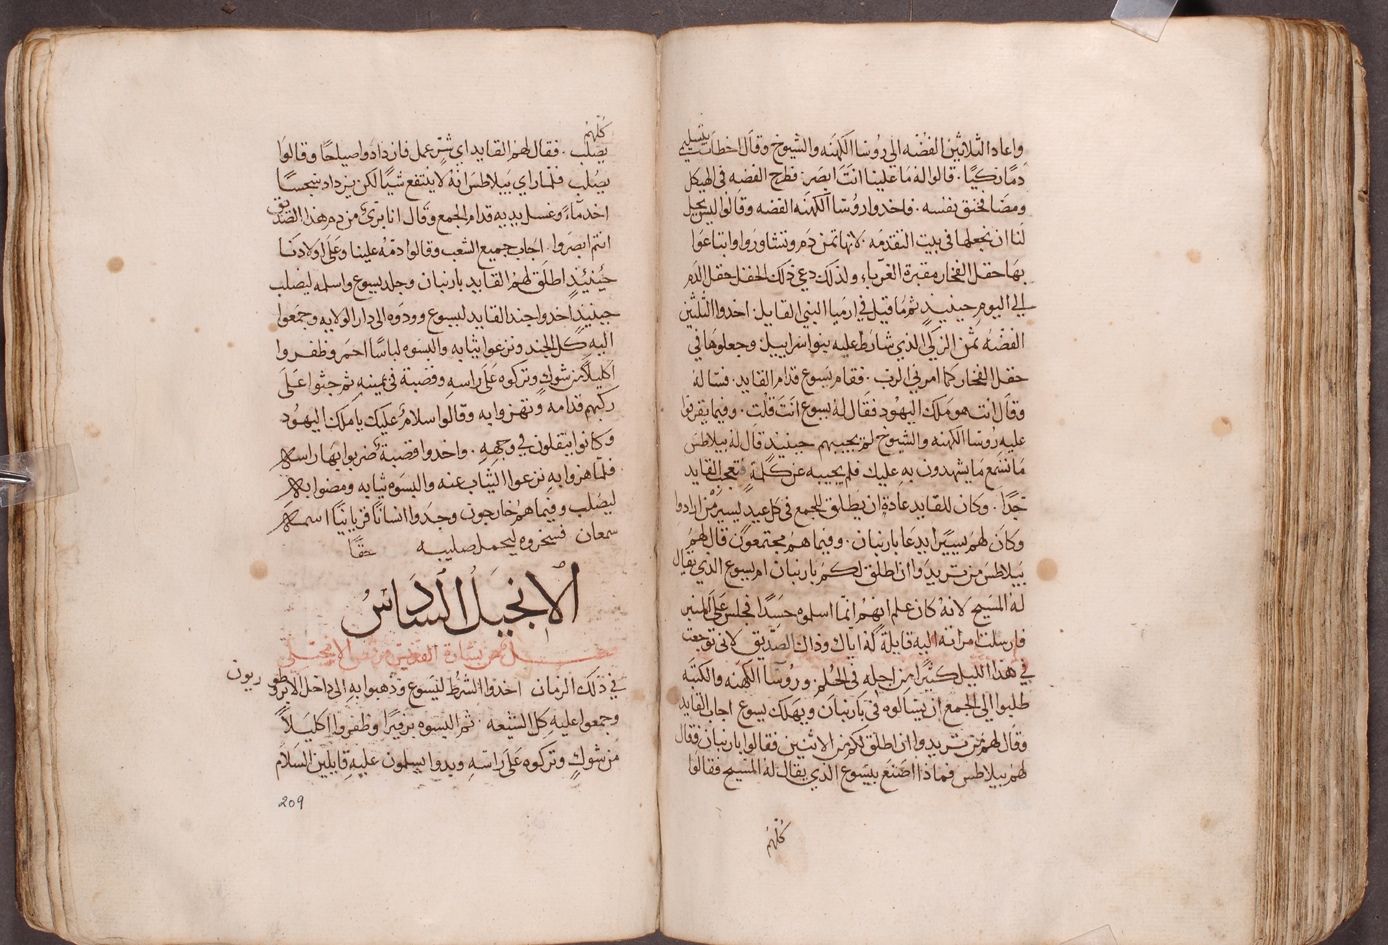 واعاد الثلاثين الفضه الى روسا الكهنه والشيوخ وقال اخطات بتسليم
دما زكيا. قالوا له ما علينا انت ابصر: فطرح الفضه فى الهيكل
ومضا فخنق نفسه. فاخدوا روسا الكهنه الفضه وقالوا ليس يحل
لنا ان نجعلها فى بيت التقدمه. لانها ثمن دم وتشاوروا وابتاعوا
بها حقل الفخار مقبرة الغربا، ولذلك دعى ذلك الحقل حقل الدم
الى اليوم حينيد ثم ما قيل فى ارميا النبى القايل: اخدوا الثلثين
الفضه ثمن الزكى الذي شارط عليه بنوا اسراييل: وجعلوها فى
حقل الفخار كما امرنى الرب. فقام يسوع قدام القايد. فساله
وقال انت هو ملك اليهود فقال له يسوع انت قلت. وفيما يقرفوا
عليه روسا الكهنه والشيوخ لم يجيبهم حينيد قال له بيلاطس
ما تسمع ما يشهدون به عليك فلم يجيبه عن كلمة فتعجب القايد
جدا. وكان للقايد عادة ان يطلق للجمع فى كل عيد ليسير من ارادوا
وكان لهم يسير ايد عا بارنبان. وفيما هم مجتمعون قال لهم
بيلاطس من تريدوا ان اطلق لكم بارنبان ام يسوع الذي يقال
له المسيح لانه كان علم انهم انما اسلموه حسدا فجلس على المنبر
فارسلت امراته اليه قايلة كف اياك وذاك الصديق لانى توجعت
فى هذا الليل كثيرا من اجله فى الحلم. وروسا الكهنه والكتبه
طلبوا الى الجمع ان يسالوه فى بارنبان ويهلك يسوع اجاب القايد
وقال لهم من تريدوا ان اطلق لكم من الاثنين فقالوا بارنبان فقال
لهم بيلاطس فماذا اصنع بيسوع الذي يقال له المسيح فقالوا
كلهم
كلهم
يصلب. فقال لهم القايد اي شر عمل فازدادوا صياحا وقالوا
يصلب فلما راي بيلاطس انه لا ينتفع شيا لكن يزداد سجسا
اخد ماء، وغسل يديه قدام الجمع وقال انا برى من دم هذا الصديق
انتم ابصروا. اجاب جميع الشعب وقالوا دمه علينا وعلى اولادنا
حينيد اطلق لهم القايد بارنبان وجلد يسوع واسلمه ليصلب
حينيد اخدوا جند القايد ليسوع وودوه الى دار الولايه وجمعوا
اليه كل الجند ونزعوا ثيابه والبسوه لباسا احمر وظفروا
اكليلا من شوك وتركوه على راسه وقصبة فى يمينه ثم جثوا على
ركبهم قدامه وتهزوا به وقالوا سلام عليك يا ملك اليهود
وكانوا يتفلون فى وجهه. واخدوا قصبة ضربوا بها راسه
فلما هزوا به نزعوا الثياب عنه والبسوه ثيابه ومضوا به
ليصلب وفيما هم خارجون وجدوا انسانا قريانيا اسمه
سمعان فسخروه ليحمل صليبه حقا
الانجيل السادس
فصل من بشارة القديس مرقس الانجيلى
فى ذلك الزمان اخدوا الشرط ليسوع وذهبوا به الى داخل الابروطوريون
وجمعوا عليه كل الشيعه. ثم البسوه برفيرا وظفروا اكليلا
من شوك وتركوه على راسه وبدوا يسلمون عليه قايلين السلام
209